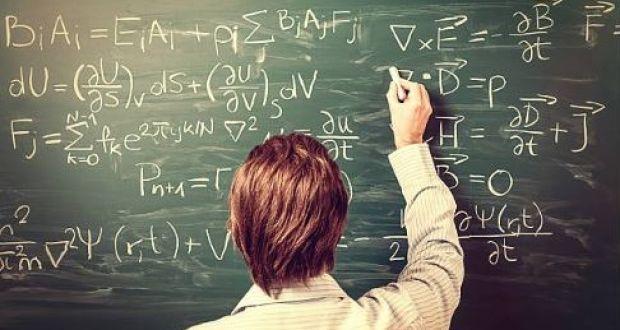 BᵢAᵢ = EᵢAᵢ + ρᵢ∑BⱼAⱼFⱼ
∇×E⃗ = -∂B⃗/∂t
F⃗ =
dU = (∂U/∂S)ᵥ dS + (∂U/∂V)ₛ dV
·D⃗ = ρ
Fⱼ = ∑ₖ₌₀ᴺ⁻¹ fₖe^(2πijk/N)
∇²
= ∂u/∂t
H⃗ = ∂D⃗/∂t + J⃗
Pₙ₊₁ = r
B⃗ = 0
²/2m ∇²Ψ(r,t) + V
∂Ψ(r,t)/∂t